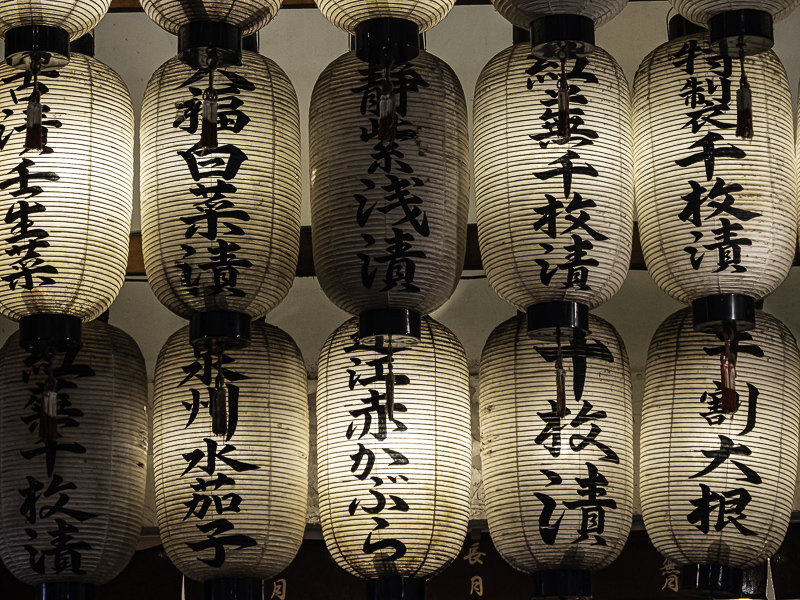 特製千枚漬
紅蕪千枚漬
静紫浅漬
大福白菜漬
古漬壬生菜
割大根
千枚漬
近江赤かぶら
泉州水茄子
紅蕪千枚漬
無月
長月
月